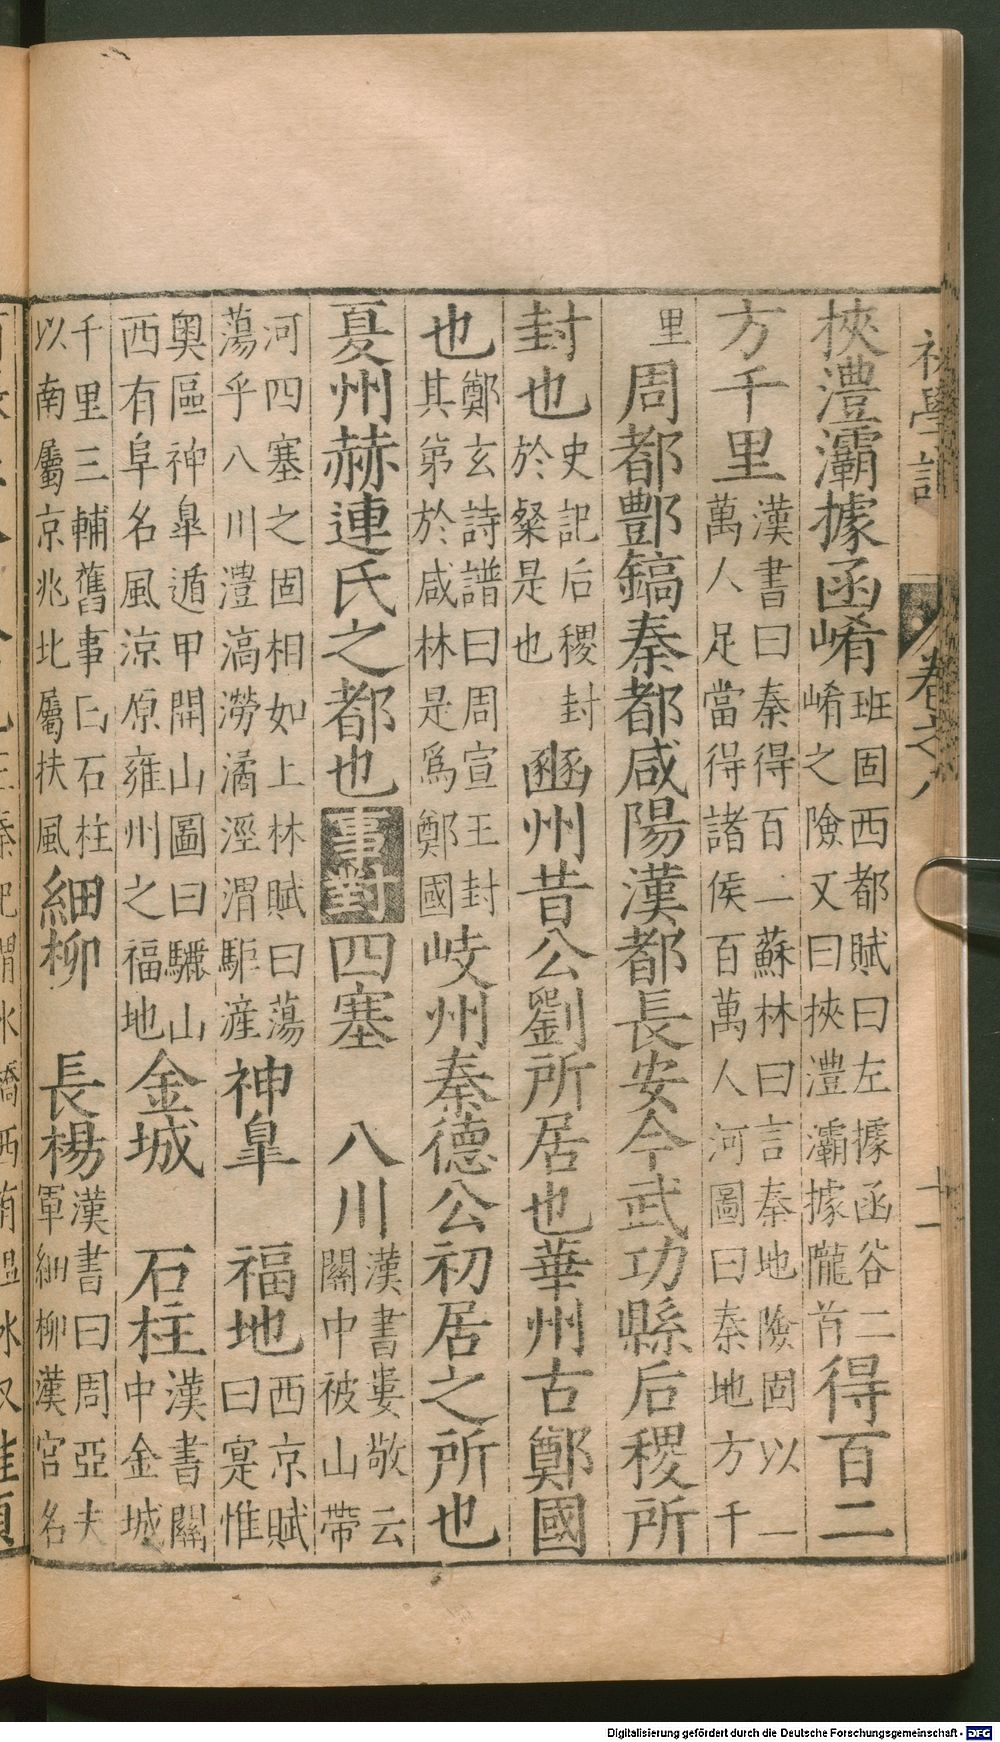 初學記 卷之八 十一
挾灃灞據函崤班固西都賦曰左據函谷二崤之險又曰挾灃灞據隴首得百二
方千里漢書曰秦得百二蘇林曰言秦地險固以一萬人足當得諸侯百萬人河圖曰秦地方千
里周都酆鎬秦都咸陽漢都長安今武功縣后稷所
封也史記后稷封於粲是也豳州昔公劉所居也華州古鄭國
也鄭玄詩譜曰周宣王封其弟於咸林是爲鄭國岐州秦德公初居之所也
夏州赫連氏之都也事對四塞 八川漢書婁敬云關中被山帶
河四塞之固相如上林賦曰蕩蕩乎八川灃滈澇潏涇渭駏滻神皐 福地西京賦曰寔惟
奧區神皐遁甲開山圖曰驪山西有阜名風涼原雍州之福地金城 石柱漢書關中金城
千里三輔舊事曰石柱以南屬京兆北屬扶風細柳 長楊漢書曰周亞夫軍細柳漢宮名
Digitalisierung gefördert durch die Deutsche Forschungsgemeinschaft - DFG